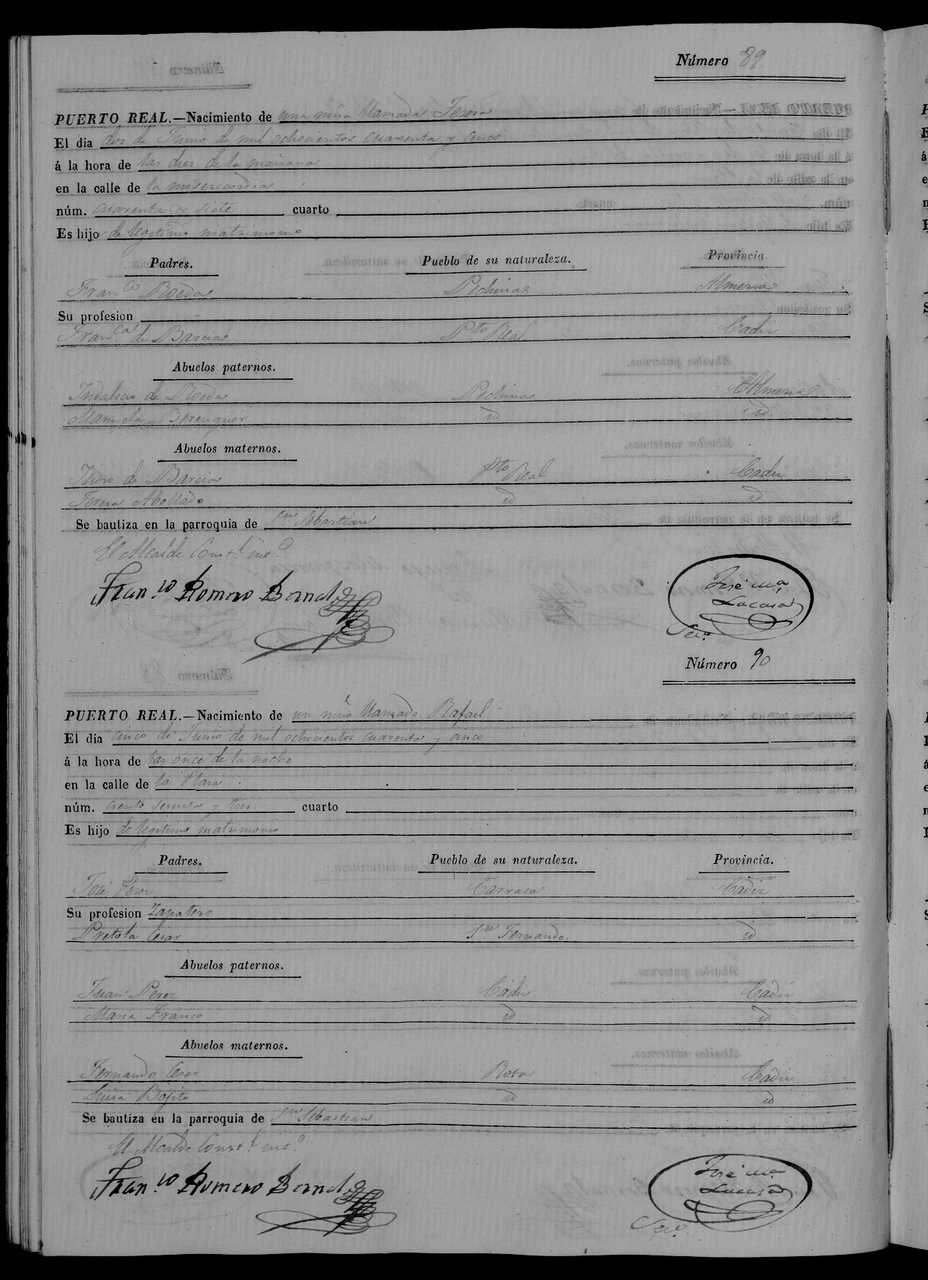 Número 89
PUERTO REAL.—Nacimiento de una niña llamada Teresa
El dia dos de Junio de mil ochocientos cuarenta y cinco
á la hora de las diez de la mañana
en la calle de la misericordia
núm. cuarenta y siete cuarto
Es hijo de legitimo matrimonio
Padres. Pueblo de su naturaleza. Provincia
Franco Pechina Almeria
Su profesion
Franca de Pto Real Cadiz
Abuelos paternos.
Indalecio de Pechina Almeria
Manuela Berenguer id id
Abuelos maternos.
de Pto Real Cadiz
Teresa id id
Se bautiza en la parroquia de Sn Sebastian
El Alcalde Const. ino
Franco Romero Bernal
José Ma
Lacasa
Seco
Número 90
PUERTO REAL.—Nacimiento de un niño llamado Rafael
El dia cinco de Junio de mil ochocientos cuarenta y cinco
á la hora de las once de la noche
en la calle de la Plaza
núm. ciento y tres cuarto
Es hijo de legitimo matrimonio
Padres. Pueblo de su naturaleza. Provincia.
José Perez Carraca Cadiz
Su profesion Zapatero
Sn Fernando id
Abuelos paternos.
Juan Perez Cadiz Cadiz
Maria Franco id id
Abuelos maternos.
Fernando Rota Cadiz
id id
Se bautiza en la parroquia de Sn Sebastian
El Alcalde Const. ino
Franco Romero Bernal
José Ma
Lacasa
Seco